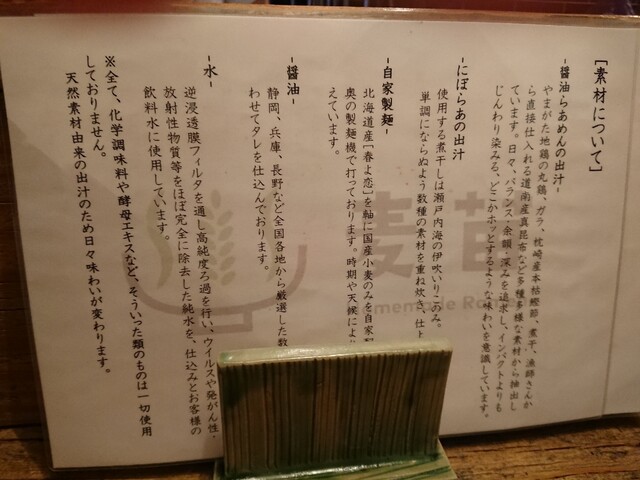 ［素材について］
-醤油らあめんの出汁-
やまがた地鶏の丸鶏、ガラ、枕崎産本枯鰹節、煮干、漁師さんか
ら直接仕入れる道南産真昆布など多種多様な素材から抽出し
ています。日々、バランス・余韻・深みを追求し、インパクトよりも
じんわり染みる、どこかホッとするような味わいを意識しています。
-にぼらあの出汁
使用する煮干しは瀬戸内海の伊吹いりこのみ。
単調にならぬよう数種の素材を重ね炊き、仕上
-自家製麺-
北海道産［春よ恋］を軸に国産小麦のみを自家製
奥の製麺機で打っております。時期や天候により
えています。
-醤油-
静岡、兵庫、長野など全国各地から厳選した数
わせてタレを仕込んでおります。
-水-
逆浸透膜フィルタを通し高純度ろ過を行い、ウイルスや発がん性・
放射性物質等をほぼ完全に除去した純水を、仕込みとお客様の
飲料水に使用しています。
※全て、化学調味料や酵母エキスなど、そういった類のものは一切使用
しておりません。
天然素材由来の出汁のため日々味わいが変わります。
麦苗